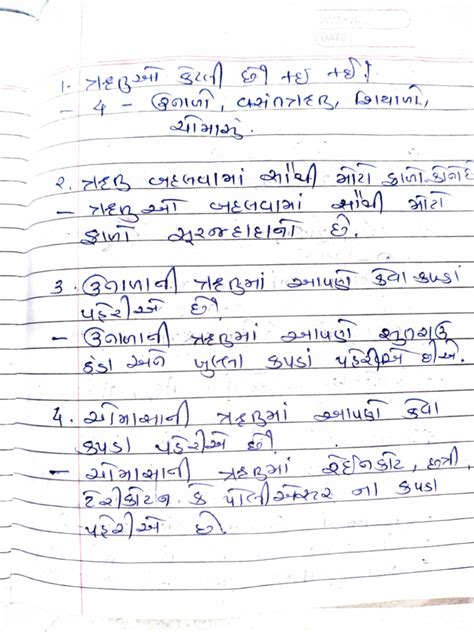 1. ઋતુઓ કેટલી છે? કઇ કઇ?
- 4 - ઉનાળો, વસંતઋતુ, શિયાળો,
ચોમાસું.
૨. ઋતુ બદલવામાં સૌથી મોટો ફાળો કોનો
- ઋતુઓ બદલવામાં સૌથી મોટો
ફાળો સૂરજદાદાનો છે.
3. ઉનાળાની ઋતુમાં આપણે કેવા કપડાં
પહેરીએ છે?
- ઉનાળાની ઋતુમાં આપણે સુતરાઉ
ઠંડા અને ખુલતા કપડાં પહેરીએ છીએ.
4. ચોમાસાની ઋતુમાં આપણે કેવા
કપડા પહેરીએ છે?
- ચોમાસાની ઋતુમાં રેઈનકોટ, છત્રી,
ટેરીકોટન કે પોલીએસ્ટર ના કપડા
પહેરીએ છે.